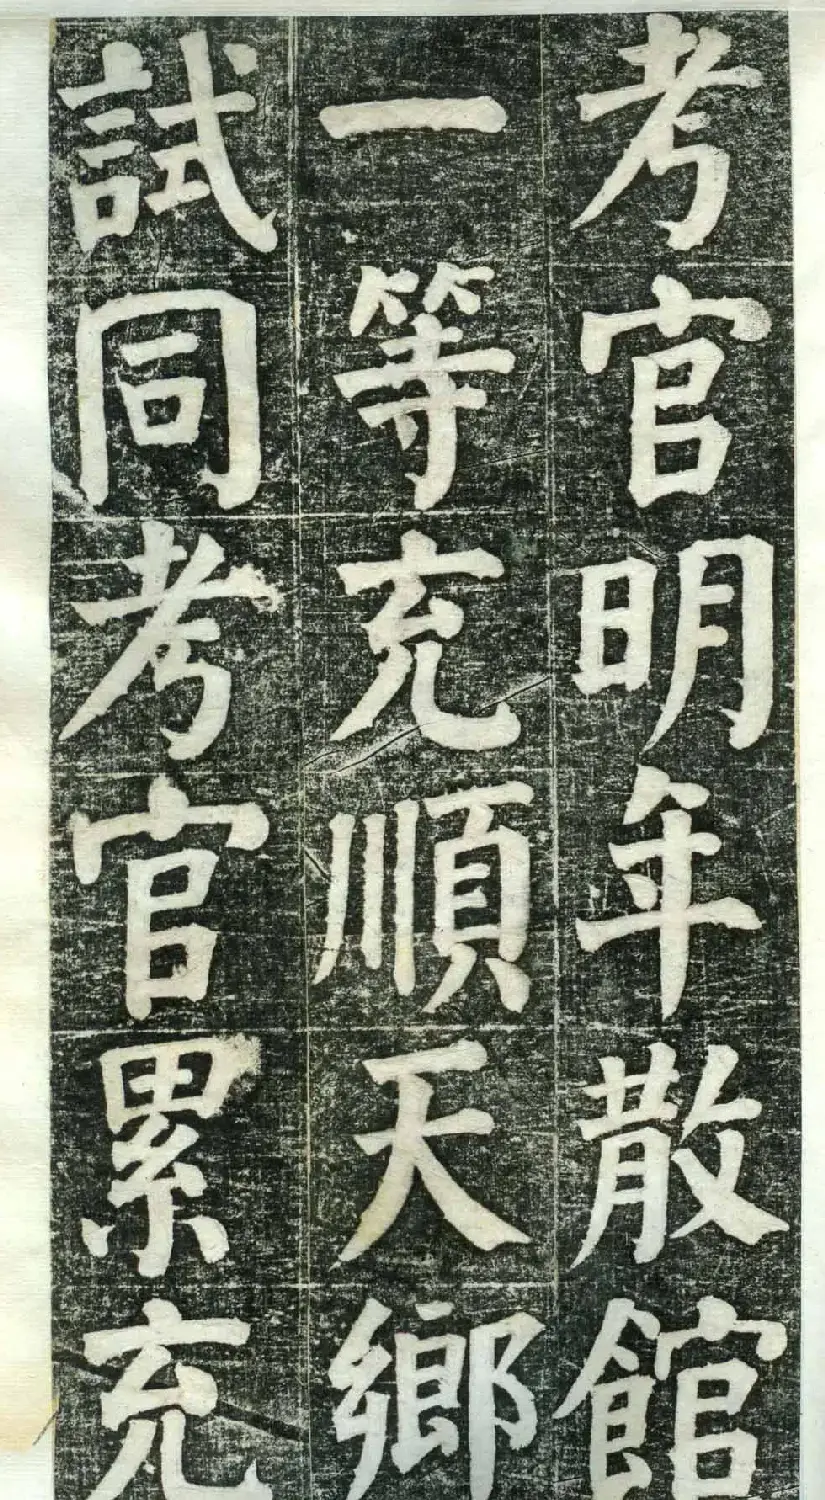 考官明年散館
一等充順天鄉
試同考官累充